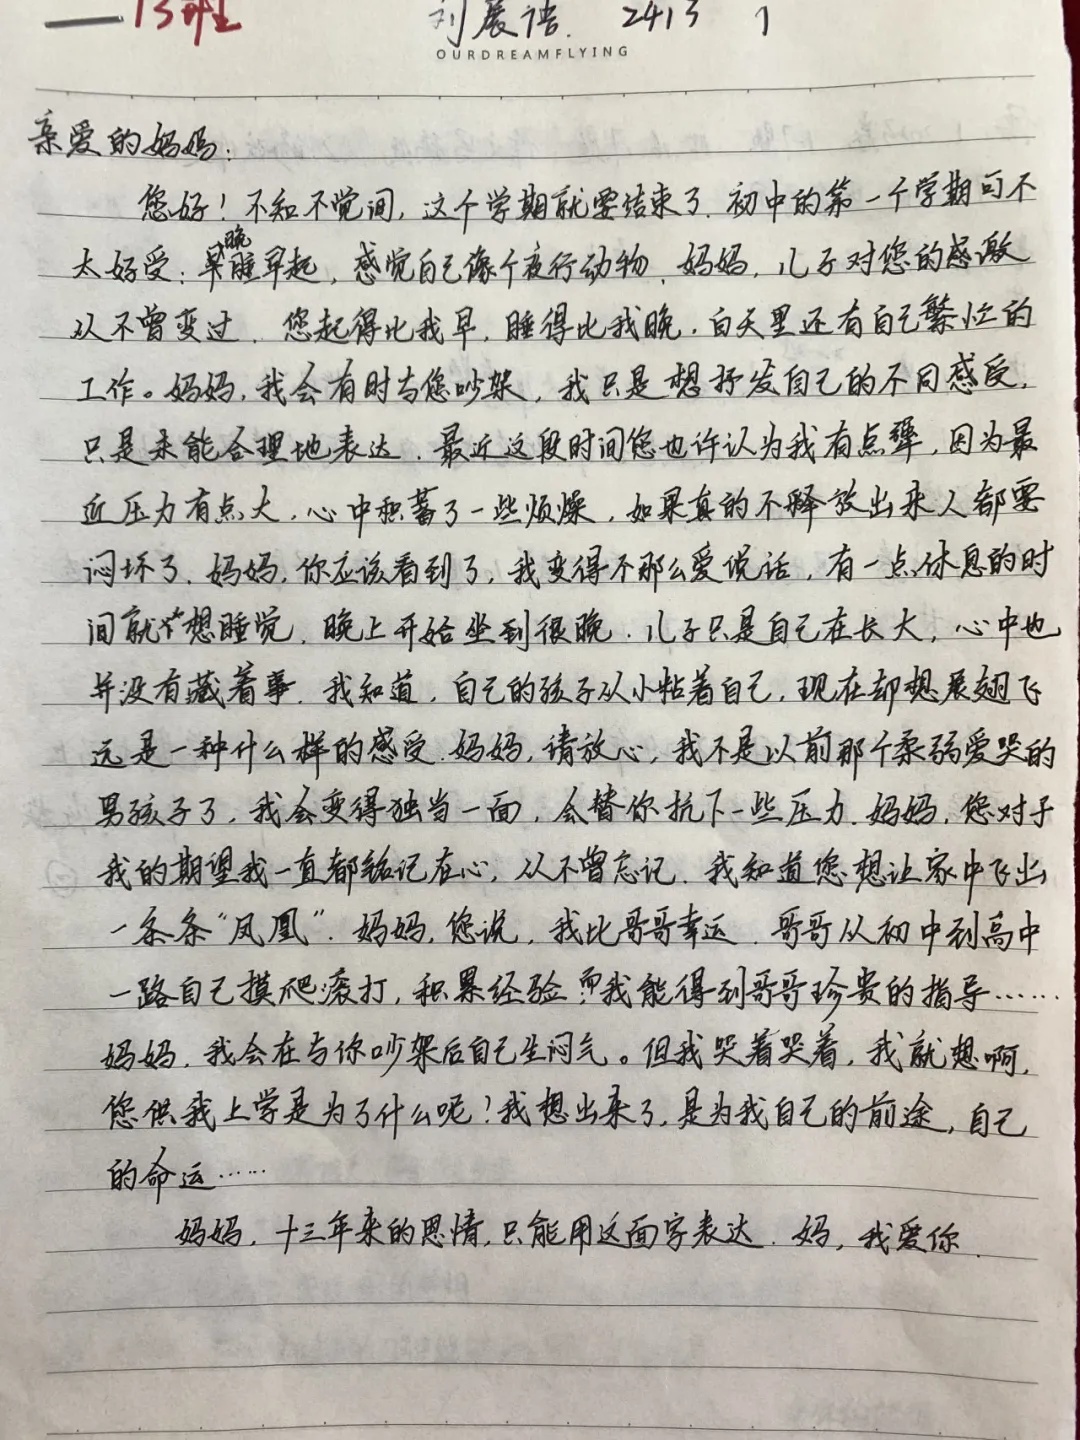 13班 刘展语. 2413 1
OURDREAMFLYING
亲爱的妈妈:
您好!不知不觉间,这个学期就要结束了.初中的第一个学期可不
太好受:晚睡早起,感觉自己像个夜行动物.妈妈,儿子对您的感激
从不曾变过.您起得比我早,睡得比我晚.白天里还有自己繁忙的
工作。妈妈,我会有时与您吵架,我只是想抒发自己的不同感受,
只是未能合理地表达.最近这段时间您也许认为我有点犟,因为最
近压力有点大,心中积蓄了一些烦燥,如果真的不释放出来人都要
闷坏了.妈妈,你应该看到了,我变得不那么爱说话,有一点休息的时
间就想睡觉,晚上开始坐到很晚.儿子只是自己在长大,心中也
并没有藏着事.我知道,自己的孩子从小粘着自己,现在却想展翅飞
远是一种什么样的感受.妈妈,请放心,我不是以前那个柔弱爱哭的
男孩子了,我会变得独当一面,会替你抗下一些压力.妈妈,您对于
我的期望我一直都铭记在心,从不曾忘记.我知道您想让家中飞出
一条条“凤凰”.妈妈,您说,我比哥哥幸运.哥哥从初中到高中
一路自己摸爬滚打,积累经验而我能得到哥哥珍贵的指导……
妈妈,我会在与你吵架后自己生闷气。但我哭着哭着,我就想啊,
您供我上学是为了什么呢?我想出来了,是为我自己的前途,自己
的命运……
妈妈,十三年来的恩情,只能用这面字表达.妈,我爱你.